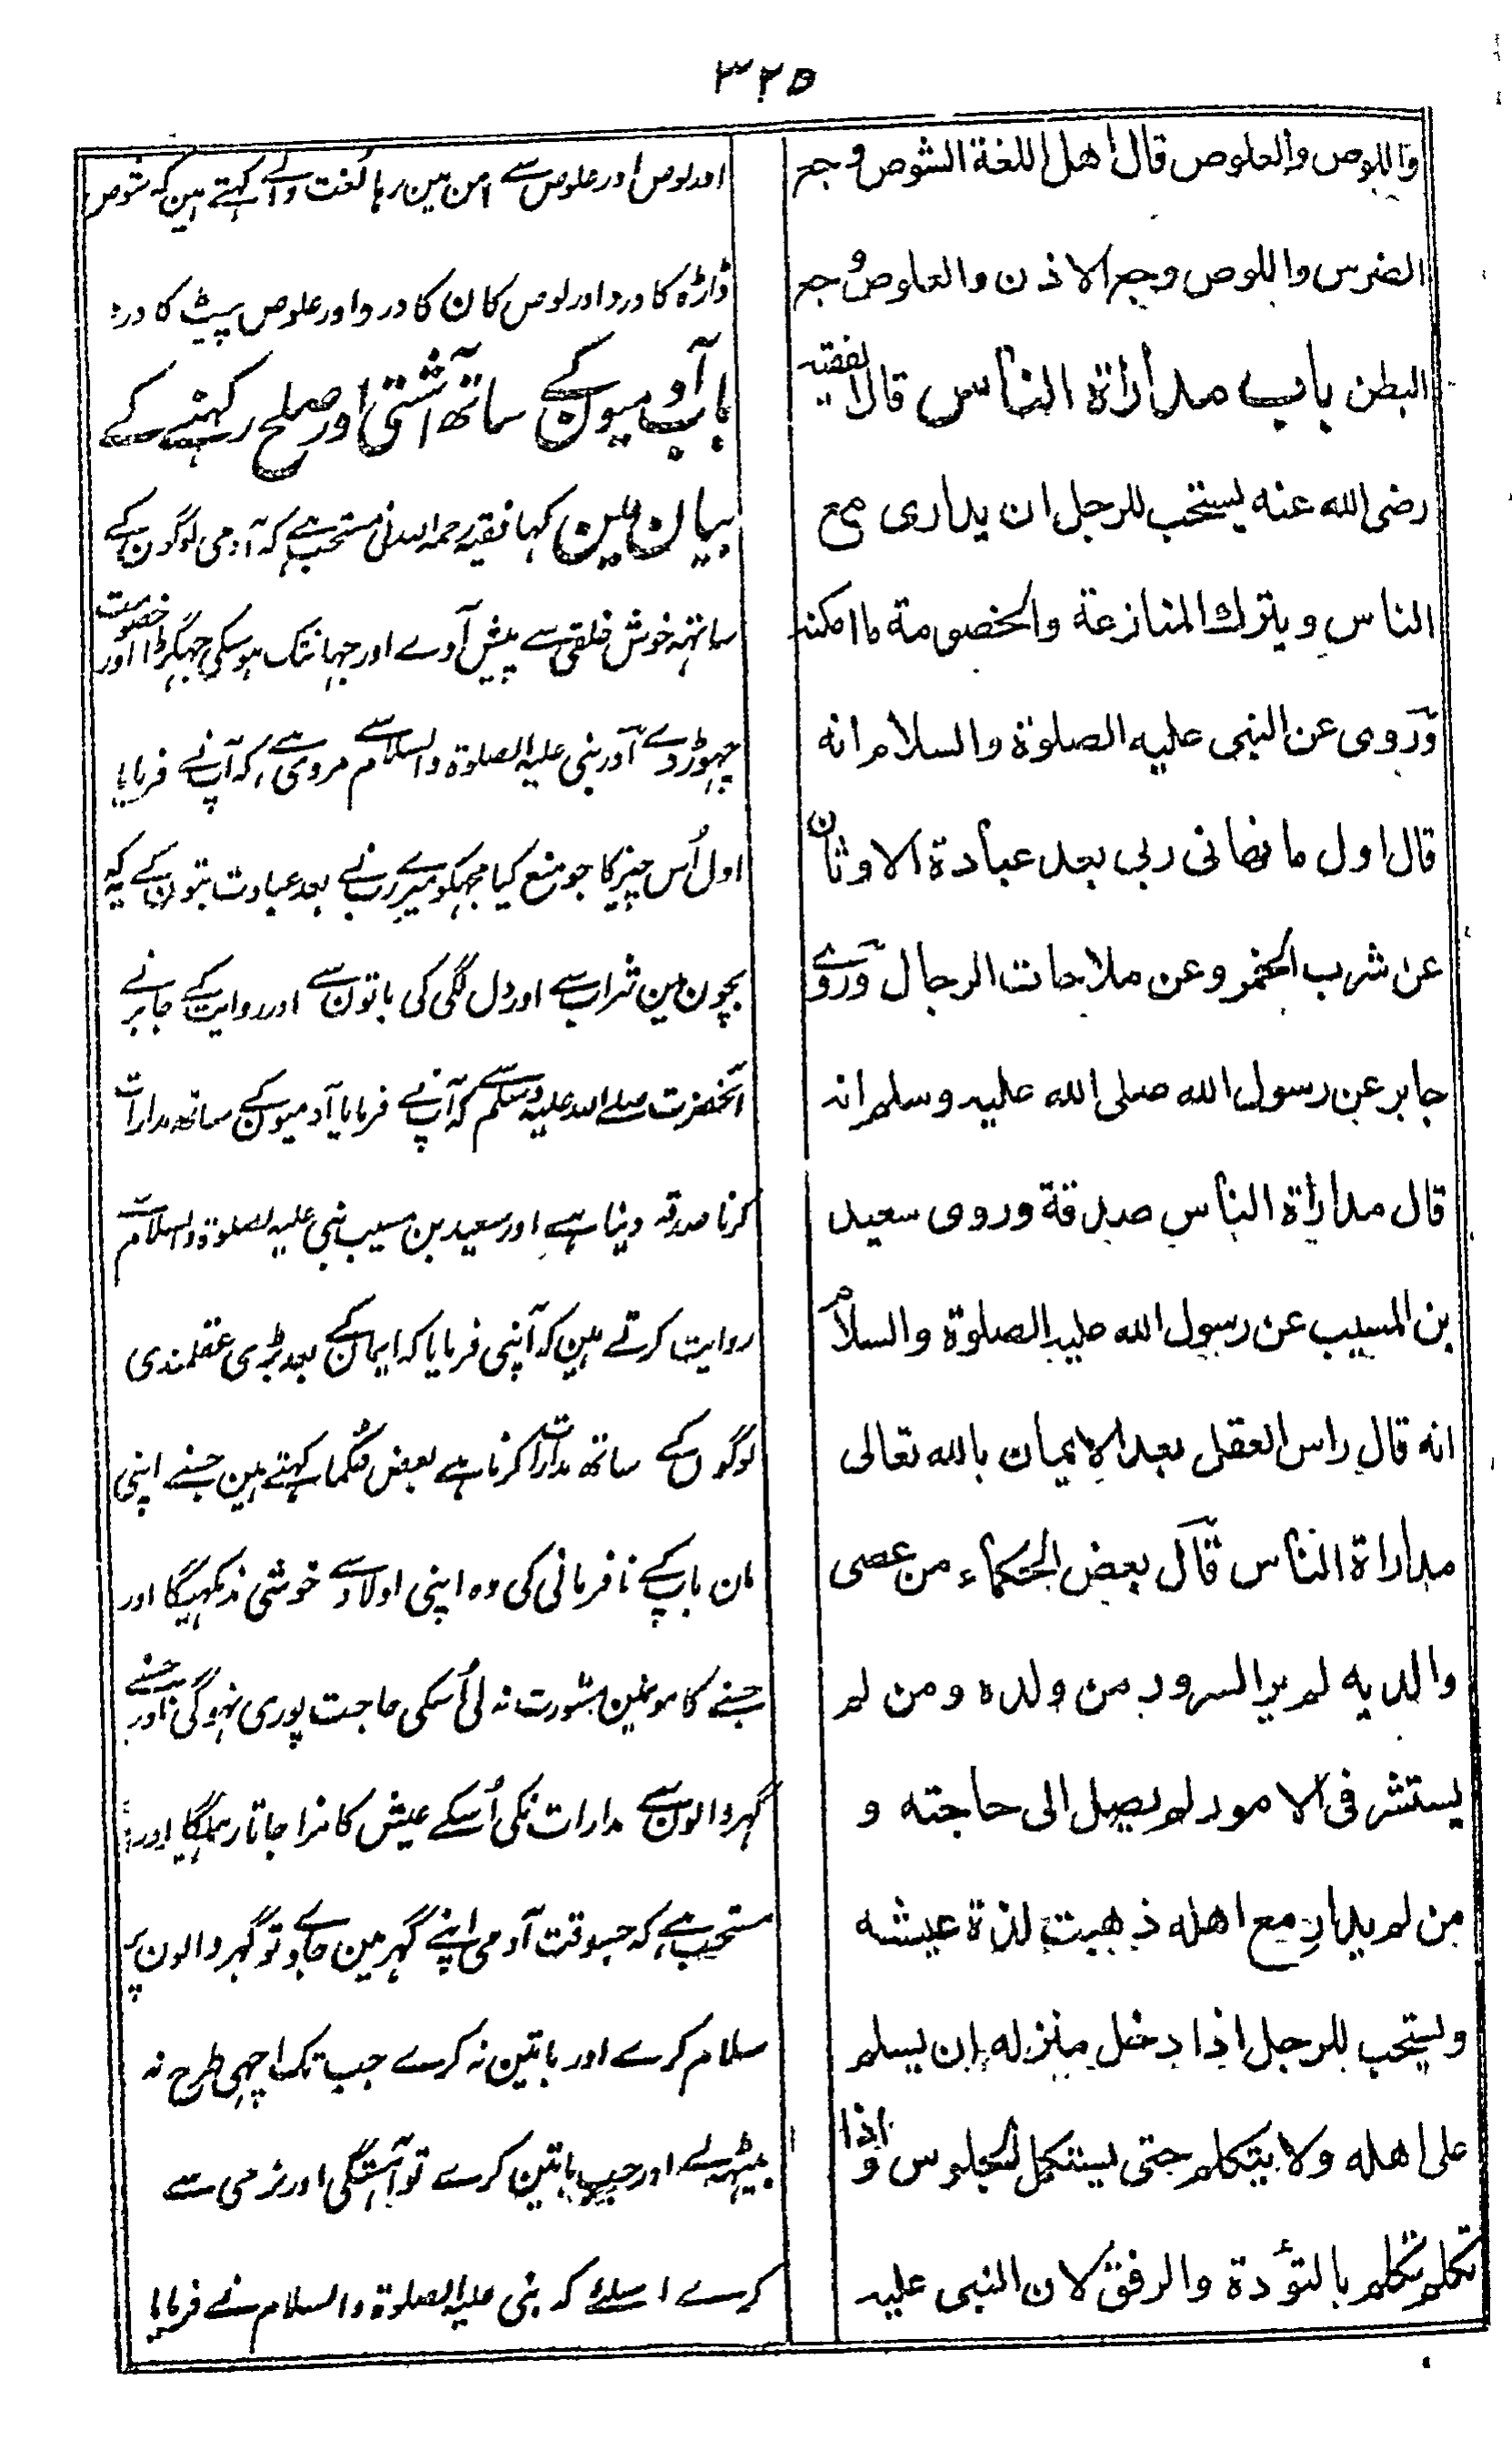 ٣٢٥
واللوص والعلوص قال اهل اللغة الشوص وجع
الضرس واللوص وجع الاذن والعلوص وجع
البطن باب مداراة الناس قال الفقيه
رضى الله عنه يستحب للرجل ان يدارى مع
الناس ويترك المنازعة والخصومة ما امكنه
وروى عن النبى عليه الصلوة والسلام انه
قال اول ما نهانى ربى بعد عبادة الاوثان
عن شرب الخمر وعن ملاحات الرجال وروى
جابر عن رسول الله صلى الله عليه وسلم انه
قال مداراة الناس صدقة وروى سعيد
بن المسيب عن رسول الله عليه الصلوة والسلام
انه قال راس العقل بعد الايمان بالله تعالى
مداراة الناس قال بعض الحكماء من عصى
والديه لم ير السرور من ولده ومن لم
يستشر فى الامور لم يصل الى حاجته و
من لم يدار مع اهله ذهبت لذة عيشه
ويستحب للرجل اذا دخل منزله ان يسلم
على اهله ولا يتكلم حتى يستكمل الجلوس واذا
تكلم تكلم بالتؤدة والرفق لان النبى عليه
اور لوص اور علوص سے امن مین رہا لغت والے کہتے ہین کہ شوص
ڈاڑہ کا درد اور لوص کان کا درد اور علوص پیٹ کا درد
باب آدمیون کے ساتھ آشتی اور صلح رکہنے کے
بیان مین کہا فقیہ رحمہ اللہ نی مستحب ہے کہ آدمی لوگون کے
ساتہہ خوش خلقی سے پیش آوے اور جہانتک ہوسکی جہگڑا اور خصومت
چہوڑ دے اور نبی علیہ الصلوۃ والسلام سے مروی ہے کہ آپ نے فرمایا
اول اُس چیز کا جو منع کیا مجہکو میرے رب نے بعد عبادت بتون کے یہ کہ
بچون مین شراب سے اور دل لگی کی باتون سے اور روایت کے جابر نے
آنحضرت صلے اللہ علیہ وسلم سے کہ آپ نے فرمایا آدمیون کے ساتھ مدارات
کرنا صدقہ دینا ہے اور سعید بن مسیب نبی علیہ الصلوۃ والسلام سے
روایت کرتے ہین کہ آپنی فرمایا کہ ایمان کے بعد بڑی عقلمندی
لوگون کے ساتھ مدارات کرنا ہے بعض حُکما کہتے ہین جسنے اپنی
مان باپ کے نافرمانی کی وہ اپنی اولاد سے خوشی ندکہیگا اور
جسنے کامونمین مشورت نہ لی اُسکی حاجت پوری نہوگی اور جسنے
گہر والون سے مدارات نکی اُسکے عیش کا مزا جاتا رہیگا اور
مستحب ہے کہ جسوقت آدمی اپنے گہر مین جاوے تو گہر والون پر
سلام کرے اور باتین نہ کرے جب تک اچہی طرح نہ
بیٹہہ لے اور جب باتین کرے تو آہستگی اور نرمی سے
کرے اسلئے کہ نبی علیہ الصلوۃ والسلام نے فرمایا